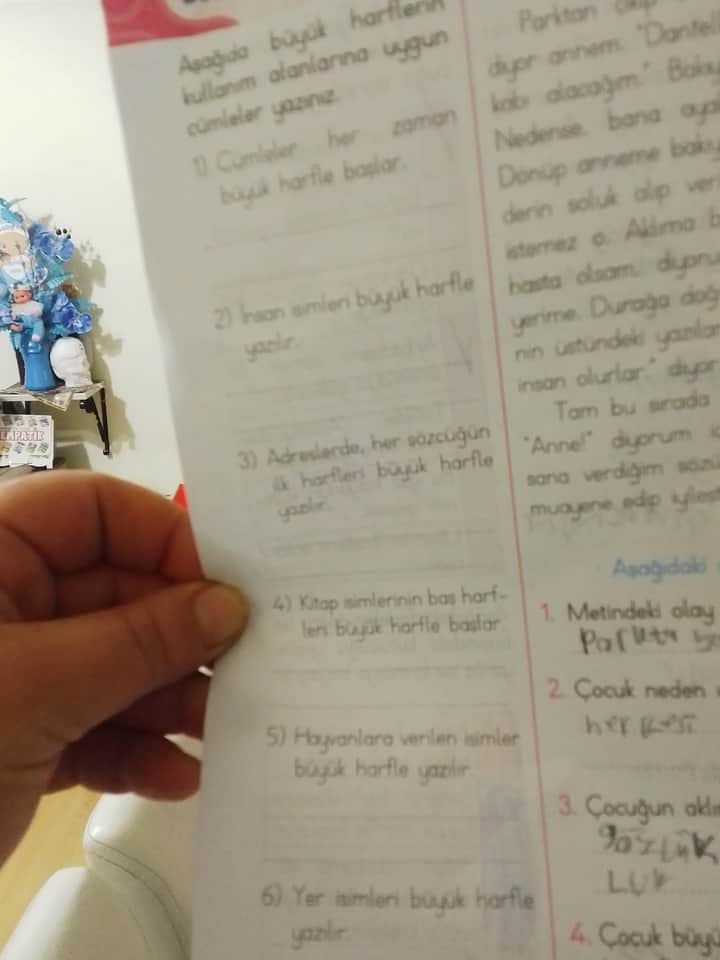 Aşağıda büyük harflerin
kullanım alanlarına uygun
cümleler yazınız.
1) Cümleler her zaman
büyük harfle başlar.
2) İnsan isimleri büyük harfle
yazılır.
3) Adreslerde, her sözcüğün
ilk harfleri büyük harfle
yazılır.
4) Kitap isimlerinin baş harf-
leri büyük harfle başlar.
5) Hayvanlara verilen isimler
büyük harfle yazılır.
6) Yer isimleri büyük harfle
yazılır.
Parktan çıkıp
diyor annem. "Dantel
kabı alacağım."
Nedense, bana
Dönüp anneme
derin soluk alıp
istemez o. Aklıma
hasta olsam, diyoru
yerime. Durağa doğ
nın üstündeki yazıla
insan olurlar." diyor
Tam bu sırada
"Anne!" diyorum
sana verdiğim sözü
muayene edip iyileş
Aşağıdaki
1. Metindeki olay
2. Çocuk neden
3. Çocuğun aklı
gözlük
LÜK
4. Çocuk büyü
EMPATİK